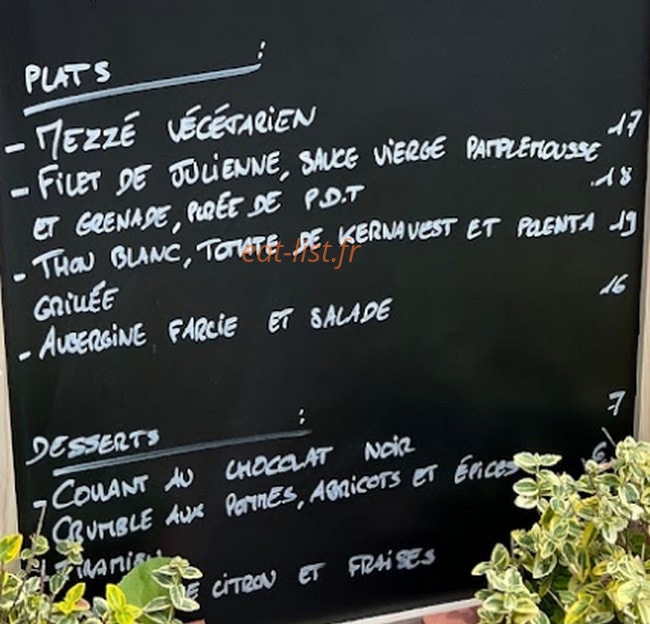 PLATS :
- MEZZÉ VÉGÉTARIEN 17
- FILET DE JULIENNE, SAUCE VIERGE PAMPLEMOUSSE
ET GRENADE, PURÉE DE P.D.T 18
- THON BLANC, TOMATE DE KERNAVEST ET POLENTA 19
GRILLÉE
- AUBERGINE FARCIE ET SALADE 16
eat-list.fr
DESSERTS :
- COULANT AU CHOCOLAT NOIR 7
CRUMBLE AUX POMMES, ABRICOTS ET ÉPICES 6
TIRAMISU
CITRON ET FRAISES